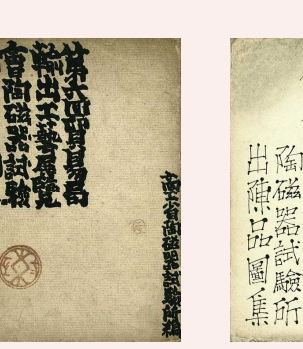 第六回貿易局
輸出工藝展覽
會陶磁器試驗
商工省陶磁器試驗所編
陶磁器試驗所
出陳品圖集